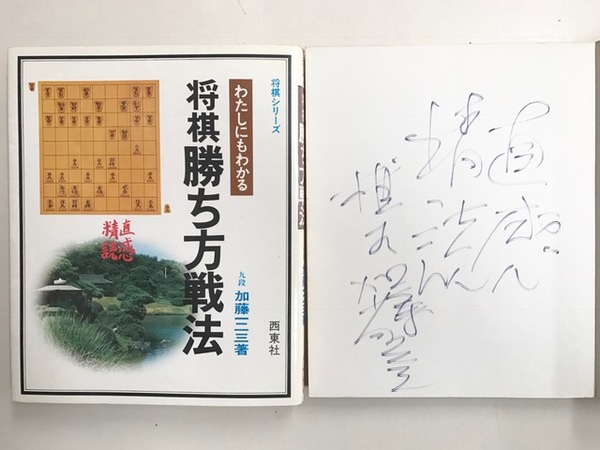 将棋シリーズ
わたしにもわかる
将棋勝ち方戦法
九段 加藤一二三著
西東社
直感
精読
直感
精読
棋士
加藤一二三